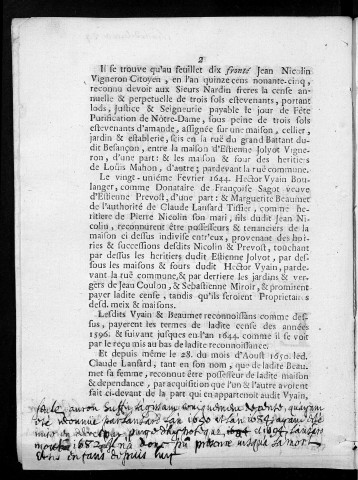 2
Il se trouve qu'au feuillet dix fronté Jean Nicolin
Vigneron Citoyen, en l'an quinze cens nonante-cinq,
reconnu devoir aux Sieurs Nardin freres la cense an-
nuelle & perpetuelle de trois sols estevenants, portant
lods, Justice & Seigneurie payable le jour de Fête
Purification de Nôtre-Dame, sous peine de trois sols
estevenants d'amande, assignée sur une maison, cellier,
jardin & establerie, seis en la ruë du grand Battant du-
dit Besançon, entre la maison d'Estienne Jolyot Vigne-
ron, d'une part: & les maison & four des heritiers
de Loüis Mahon, d'autre; pardevant la ruë commune.
Le vingt-uniéme Fevrier 1644. Hector Vyain Bou-
langer, comme Donataire de Françoise Sagot veuve
d'Estienne Prevost, d'une part: & Marguerite Beaumet
de l'authorité de Claude Lansard Tissier, comme he-
ritiere de Pierre Nicolin son mari, fils dudit Jean Ni-
colin, reconnurent être possesseurs & tenanciers de la
maison ci dessus indivise entr'eux, provenant des hoi-
ries & successions desdits Nicolin & Prevost, touchant
par dessus les heritiers dudit Estienne Jolyot, par des-
sous les maisons & fours dudit Hector Vyain, parde-
vant la ruë commune, & par derriere les jardins & ver-
gers de Jean Coulon, & Sebastienne Miroir, & promirent
payer ladite cense, tandis qu'ils seroient Proprietaires
desd. meix & maisons.
Lesdits Vyain & Beaumet reconnoissans comme des-
sus, payerent les termes de ladite cense des années
1596. & suivant jusques en l'an 1644. comme il se voit
par le reçu mis au bas de ladite reconnoissance.
Et depuis même le 28. du mois d'Aoust 1650. led.
Claude Lansard, tant en son nom, que de ladite Beau-
met sa femme, reconnut être possesseur de ladite maison
& dependance, par acquisition que l'un & l'autre avoient
fait ci-devant de la part qui en appartenoit audit Vyain,